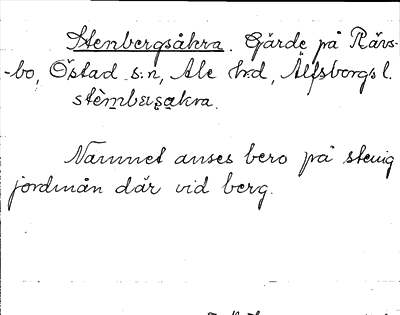 Stenbergsåkra. Gärde på Rävs-
-bo, Östad s:n, Ale h:d, Älfsborgs l.
Namnet anses bero på stenig
jordmån där vid berg.